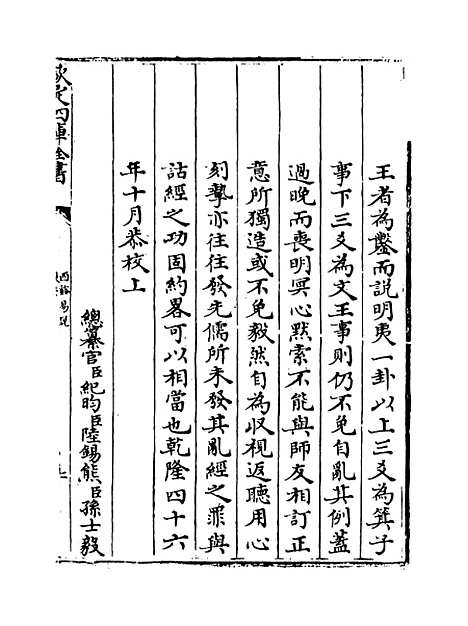 王者為鑿而說明夷一卦以上三爻為箕子
事下三爻為文王事則仍不免自亂其例蓋
過晚而喪明冥心默索不能與師友相訂正
意所獨造或不免毅然自為収視返聽用心
刻摯亦往往發先儒所未發其亂經之罪與
詁經之功固約畧可以相當也乾隆四十六
年十月恭校上
總纂官臣紀昀臣陸錫熊臣孫士毅
欽定四庫全書
易說